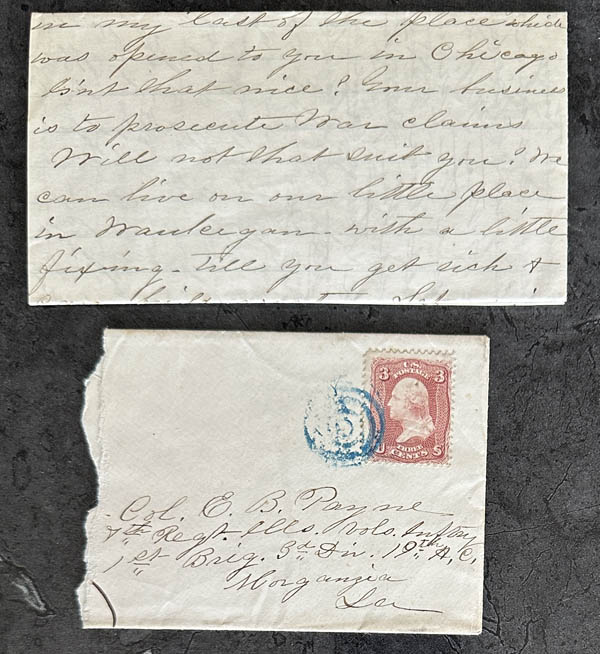 in my last of the place which
was opened to you in Chicago
Isn't that nice? Your business
is to prosecute War claims
Will not that suit you? We
can live on our little place
in Waukegan - with a little
fixing - till you get rich &
3 U.S. 3
POSTAGE
THREE
CENTS
U S
Col. E. B. Payne
7th Regt. Ills. Vols. Inftry
1st Brig. 3d Div. 19th A. C.
Morganzia
La